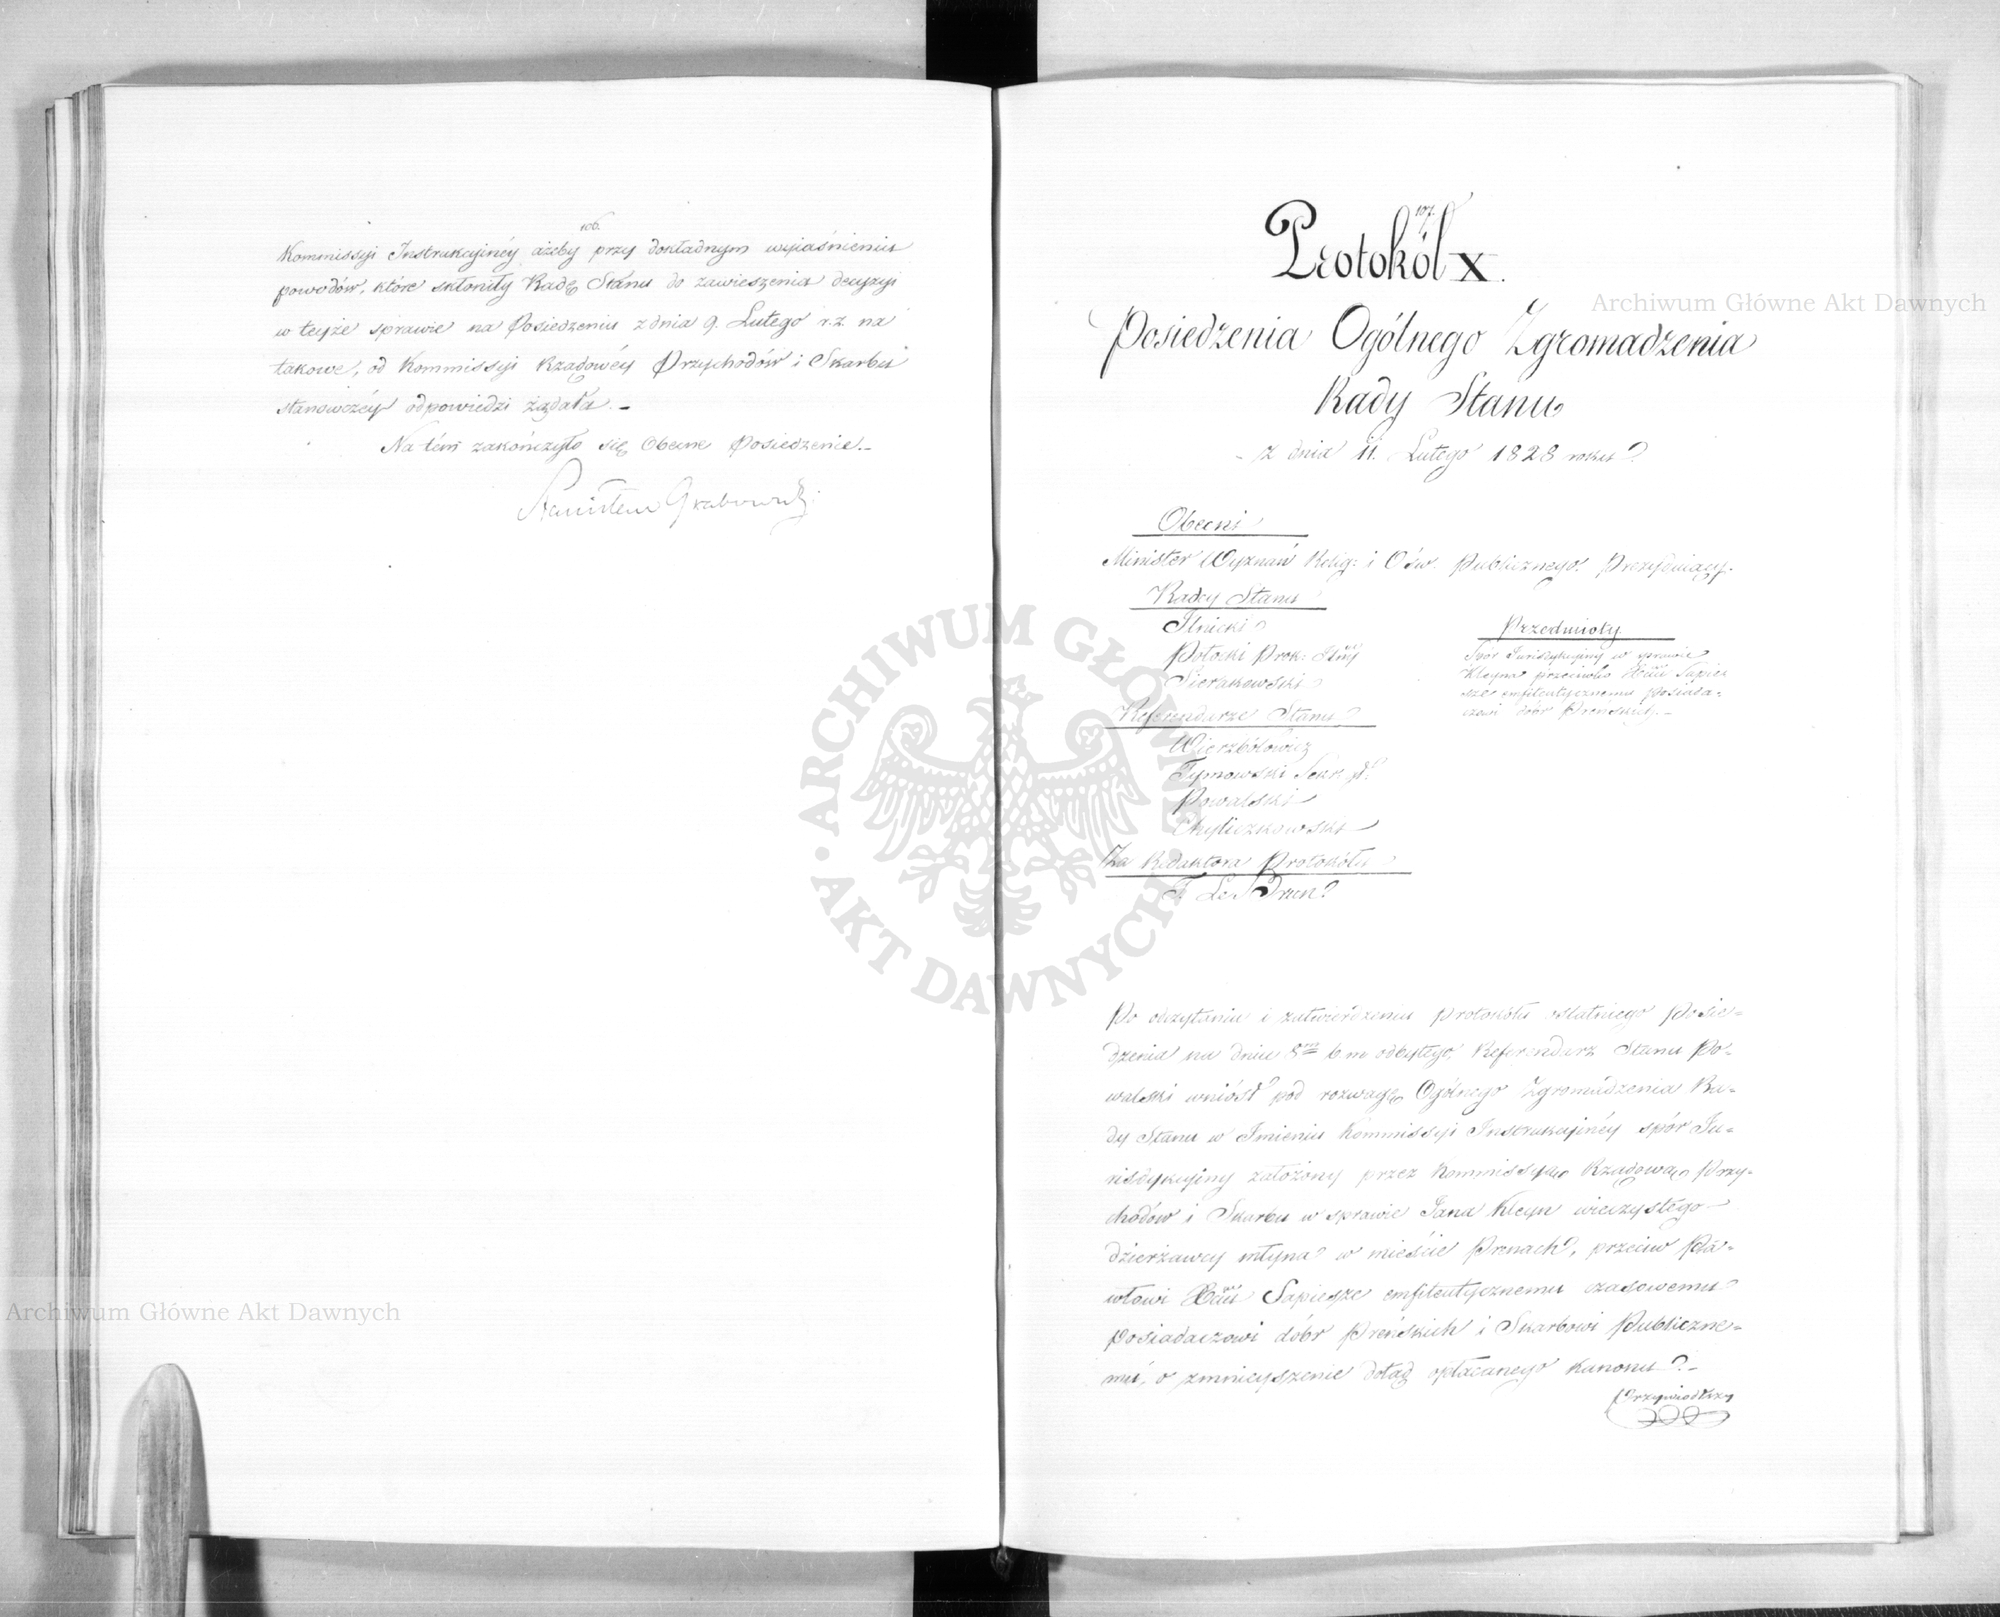 106.
Kommissyi Instrukcyinéy ażeby przy dokładnym wyjaśnieniu
powodów, które skłoniły Radę Stanu do zawieszenia decyzyi
w teyże sprawie na Posiedzeniu z dnia 9. Lutego r. z. na
takowe, od Kommissyi Rządowéy Przychodów i Skarbu
stanowczéy odpowiedzi żądała. –
Na tém zakończyło się Obecne Posiedzenie. –
Stanisław Grabowski
107.
Protokół X.
Posiedzenia Ogólnego Zgromadzenia
Rady Stanu
z dnia 11. Lutego 1828 roku
Obecni
Minister Wyznań Relig: i Ośw. Publicznego. Prezyduiący.
Radcy Stanu
Ilnicki
Potocki Prok:
Sierakowski
Referendarze Stanu
Wierzbołowicz
Tymowski Sekr.
Powalski
Chyliczkowski
Za Redaktora Protokółu
F. Le Brun
Przedmioty
Spór Jurisdykcyiny w sprawie
Kleyna przeciwko Xciu Sapie
sze emfiteutycznemu posiada-
czowi dóbr Preńskich. –
Po odczytaniu i zatwierdzeniu protokółu ostatniego Posie-
dzenia na dniu 8m b. m. odbytego, Referendarz Stanu Po-
walski wniósł pod rozwagę Ogólnego Zgromadzenia Ra-
dy Stanu w Imieniu Kommissyi Instrukcyinéy spór Ju-
risdykcyiny założony przez Kommissyę Rządową Przy-
chodów i Skarbu w sprawie Jana Kleyn wieczystego
dzierżawcy młyna w mieście Prenach, przeciw Pa-
włowi Xciu Sapiesze emfiteutycznemu czasowemu
posiadaczowi dóbr Preńskich i Skarbowi Publiczne-
mu, o zmnieyszenie dotąd opłacanego kanonu. –
Przywiodłszy
Archiwum Główne Akt Dawnych
Archiwum Główne Akt Dawnych
ARCHIWUM GŁÓWNE · AKT DAWNYCH ·